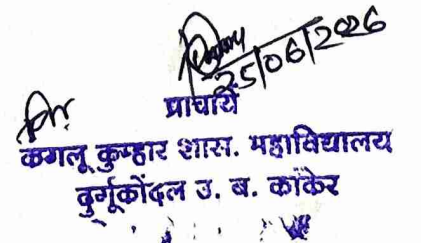 25/06/2026
प्राचार्य
कगलू कुम्हार शास. महाविद्यालय
दुर्गूकोंदल उ. ब. कांकेर